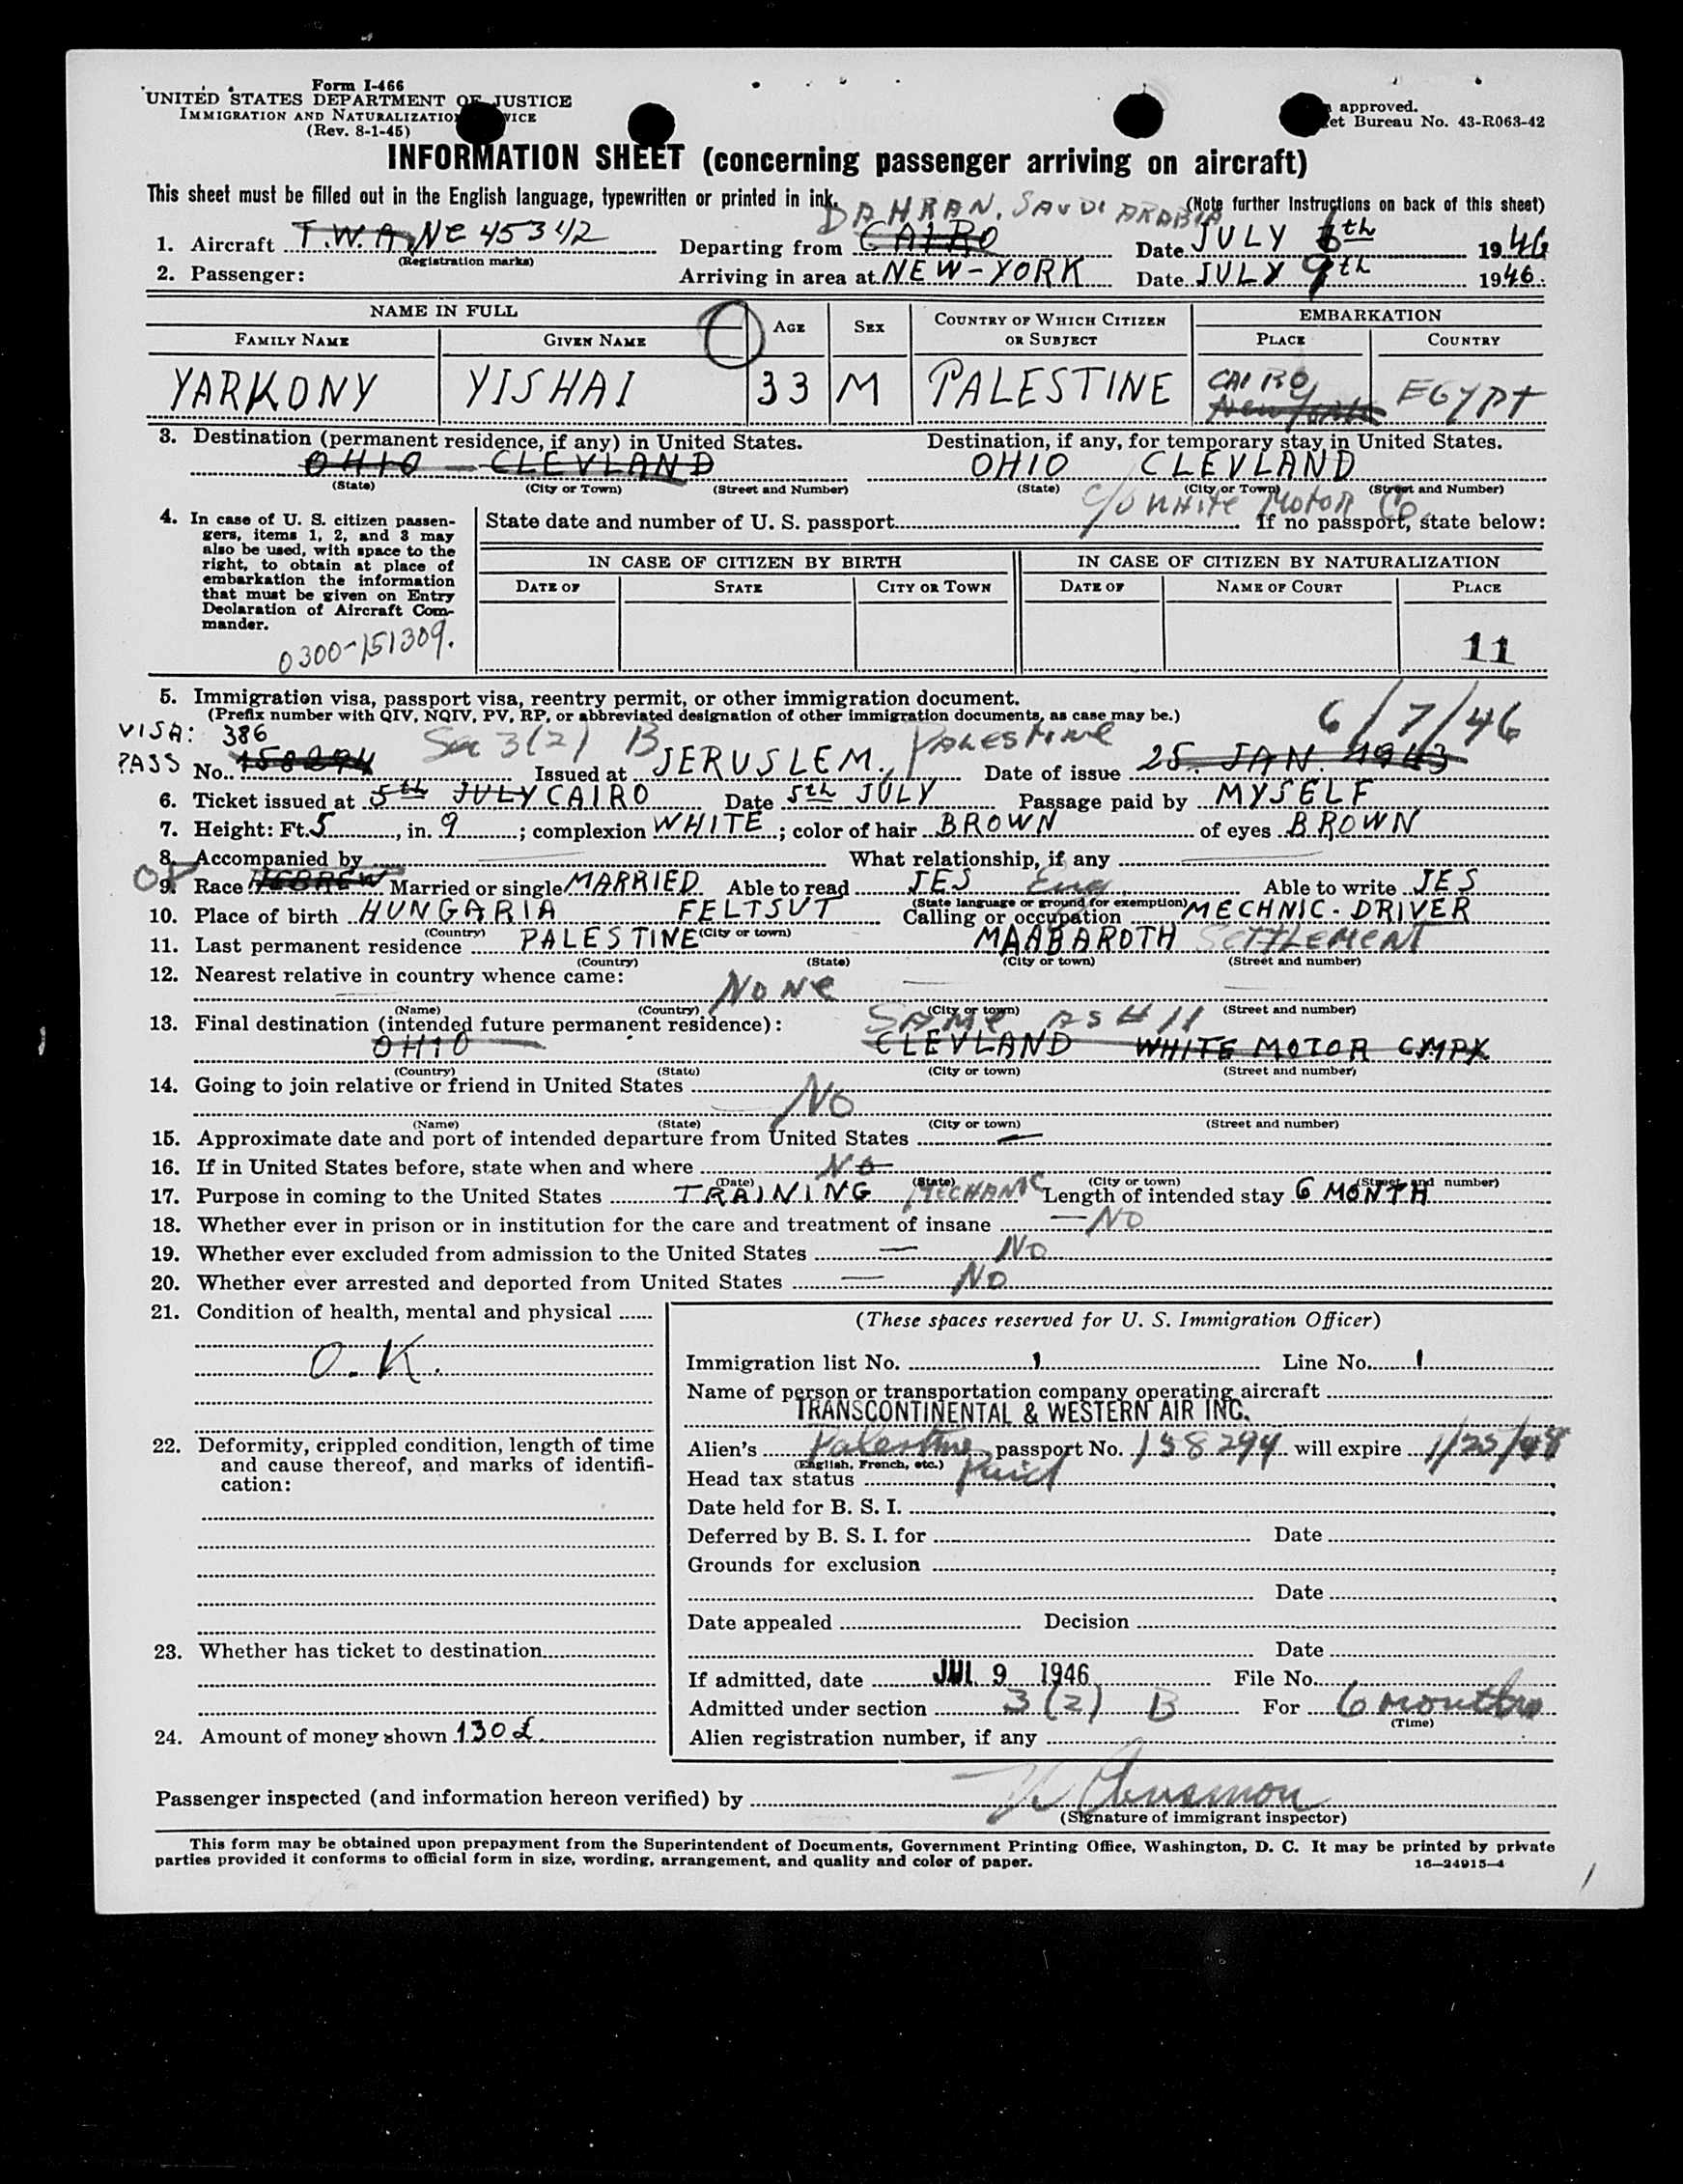 Form I-466
UNITED STATES DEPARTMENT OF JUSTICE
IMMIGRATION AND NATURALIZATION SERVICE
(Rev. 8-1-45)
approved.
et Bureau No. 43-R063-42
INFORMATION SHEET (concerning passenger arriving on aircraft)
This sheet must be filled out in the English language, typewritten or printed in ink.
(Note further Instructions on back of this sheet)
DAHRAN, SAUDI ARABIA
1. Aircraft T.W.A, NC 45342 Departing from CAIRO Date JULY 6th 1946
(Registration marks)
2. Passenger: Arriving in area at NEW-YORK Date JULY 9th 1946.
NAME IN FULL AGE SEX COUNTRY OF WHICH CITIZEN OR SUBJECT EMBARKATION
FAMILY NAME GIVEN NAME PLACE COUNTRY
YARKONY YISHAI 33 M PALESTINE CAIRO EGYPT
New York
3. Destination (permanent residence, if any) in United States. Destination, if any, for temporary stay in United States.
OHIO - CLEVLAND OHIO CLEVLAND
(State) (City or Town) (Street and Number) (State) (City or Town) (Street and Number)
c/o White Motor Co.
4. In case of U. S. citizen passengers, items 1, 2, and 3 may also be used, with space to the right, to obtain at place of embarkation the information that must be given on Entry Declaration of Aircraft Commander.
0300-151309.
State date and number of U. S. passport If no passport, state below:
IN CASE OF CITIZEN BY BIRTH IN CASE OF CITIZEN BY NATURALIZATION
DATE OF STATE CITY OR TOWN DATE OF NAME OF COURT PLACE
11
5. Immigration visa, passport visa, reentry permit, or other immigration document.
(Prefix number with QIV, NQIV, PV, RP, or abbreviated designation of other immigration documents, as case may be.)
6/7/46
VISA: 386 Sec 3(2) B PALESTINE
PASS No. 158294 Issued at JERUSLEM, Date of issue 25. JAN. 1943
6. Ticket issued at 5th JULY CAIRO Date 5th JULY Passage paid by MYSELF
7. Height: Ft. 5, in. 9; complexion WHITE; color of hair BROWN of eyes BROWN
8. Accompanied by What relationship, if any
9. Race HEBREW Married or single MARRIED Able to read JES Eng. Able to write JES
(State language or ground for exemption)
10. Place of birth HUNGARIA FELTSUT Calling or occupation MECHNIC-DRIVER
(Country) (City or town)
11. Last permanent residence PALESTINE MAABAROTH SETTLEMENT
(Country) (State) (City or town) (Street and number)
12. Nearest relative in country whence came:
NONE
(Name) (Country) (City or town) (Street and number)
13. Final destination (intended future permanent residence): SAME AS # 11
OHIO CLEVLAND WHITE MOTOR CMPX
(Country) (State) (City or town) (Street and number)
14. Going to join relative or friend in United States
NO
(Name) (State) (City or town) (Street and number)
15. Approximate date and port of intended departure from United States
16. If in United States before, state when and where NO
(Date) (State) (City or town) (Street and number)
17. Purpose in coming to the United States TRAINING MECHANIC Length of intended stay 6 MONTH
18. Whether ever in prison or in institution for the care and treatment of insane NO
19. Whether ever excluded from admission to the United States NO
20. Whether ever arrested and deported from United States NO
21. Condition of health, mental and physical
O.K.
22. Deformity, crippled condition, length of time and cause thereof, and marks of identification:
23. Whether has ticket to destination
24. Amount of money shown 130 £
(These spaces reserved for U. S. Immigration Officer)
Immigration list No. 1 Line No. 1
Name of person or transportation company operating aircraft
TRANSCONTINENTAL & WESTERN AIR INC.
Alien's Palestine passport No. 158294 will expire 1/25/48
(English, French, etc.)
Head tax status Paid
Date held for B. S. I.
Deferred by B. S. I. for Date
Grounds for exclusion
Date
Date appealed Decision
Date
If admitted, date JUL 9 1946 File No.
Admitted under section 3(2) B For 6 months
(Time)
Alien registration number, if any
Passenger inspected (and information hereon verified) by
(Signature of immigrant inspector)
This form may be obtained upon prepayment from the Superintendent of Documents, Government Printing Office, Washington, D. C. It may be printed by private
parties provided it conforms to official form in size, wording, arrangement, and quality and color of paper.
16—24915-4